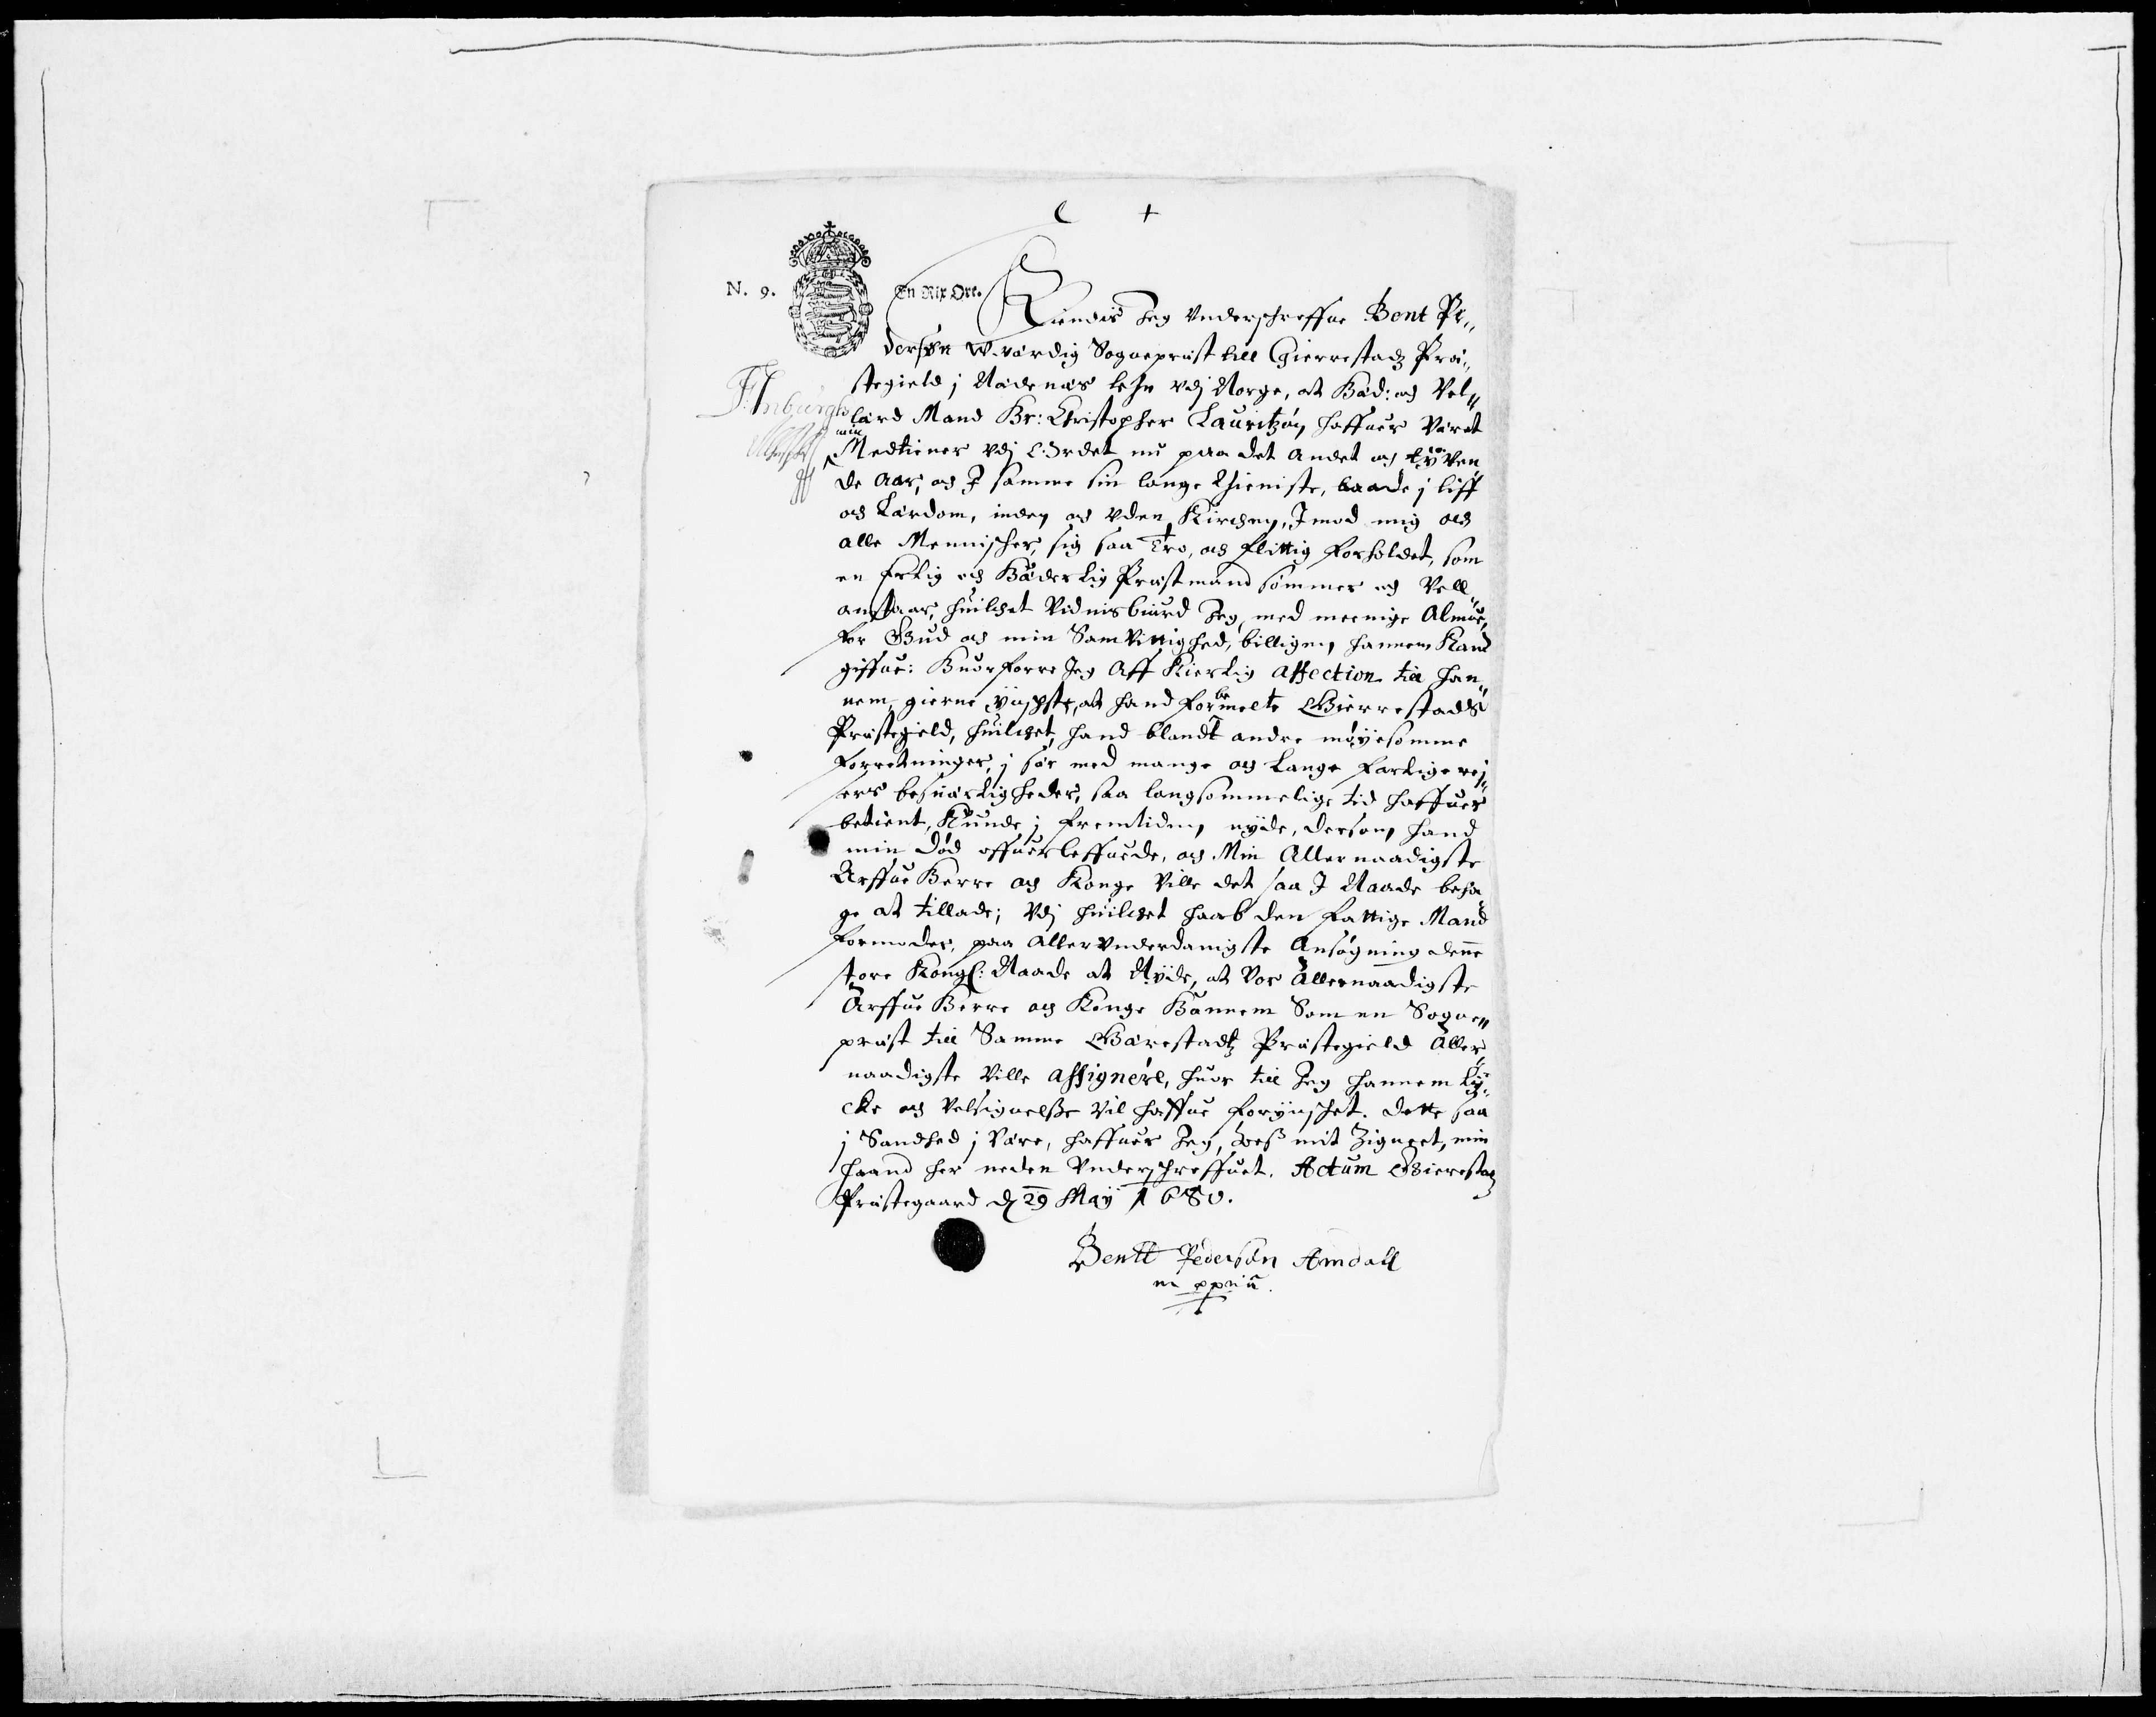 N. 9.
En Rix Ort.
Kiendis Jeg Underschreffne Bent Pe„
dersøn W-værdig Sogneprest till Gierrestadz Præ„
stegield i Nædenæs lehn udj Norge, at Hæd: og Vel„
lærd Mand Hr: Christopher Lauritzøn haffuer Været
min
Medtiener udj Ordet nu paa det andet og tyven
de Aar, og J samme sin lange Thieniste, baade i liff
og Lærdom, inden og uden Kirchen, Jmod mig och
alle Mennischer, sig saa Tro, og flittig forholdet, som
en Erlig og Hæderlig Præstmand sømmer og Vell„
anstaar, huilchet Vidnisbiurd Jeg, med meenige Almue,
for Gud og min Samvittighed, billigen hannem kand
giffue: Huorforre Jeg Aff Kierlig affection till han„
nem, gierne ynschte, at hand forbemelte Gierrestads
Præstegield, huilchet hand blandt andre møyesomme
forretninger, i sær med mange og lange farlige rej„
sers besuærligheder, saa langsommelige tid haffuer
betient, Kunde i fremtiden nyde, dersom hand
min død offuerleffuede, og Min Allernaadigste
Arffue Herre og Konge Ville det saa J Naade beha
ge at tillade; Udj huilchet haab den fattige Mand
formoder, paa allerunderdanigste Ansøgning denne
store Kongl: Naade at Nyde, at Vor Allernaadigste
Arffue Herre og Konge Hannem Som en Sogne„
præst till Samme Gierestadtz Præstegield Aller„
naadigste Ville assignere, huor till Jeg hannem Ly„
cke og Velsignelsse vil haffue forynschet. Dette saa
i Sandhed i Være, haffuer Jeg, hoes mit Zignet, min
haand her neden Underschreffuet. Actum Gierestadz
Præstegaard d 29 Maÿ 1680.
Bentt Pedersøn Amdall
m ppria